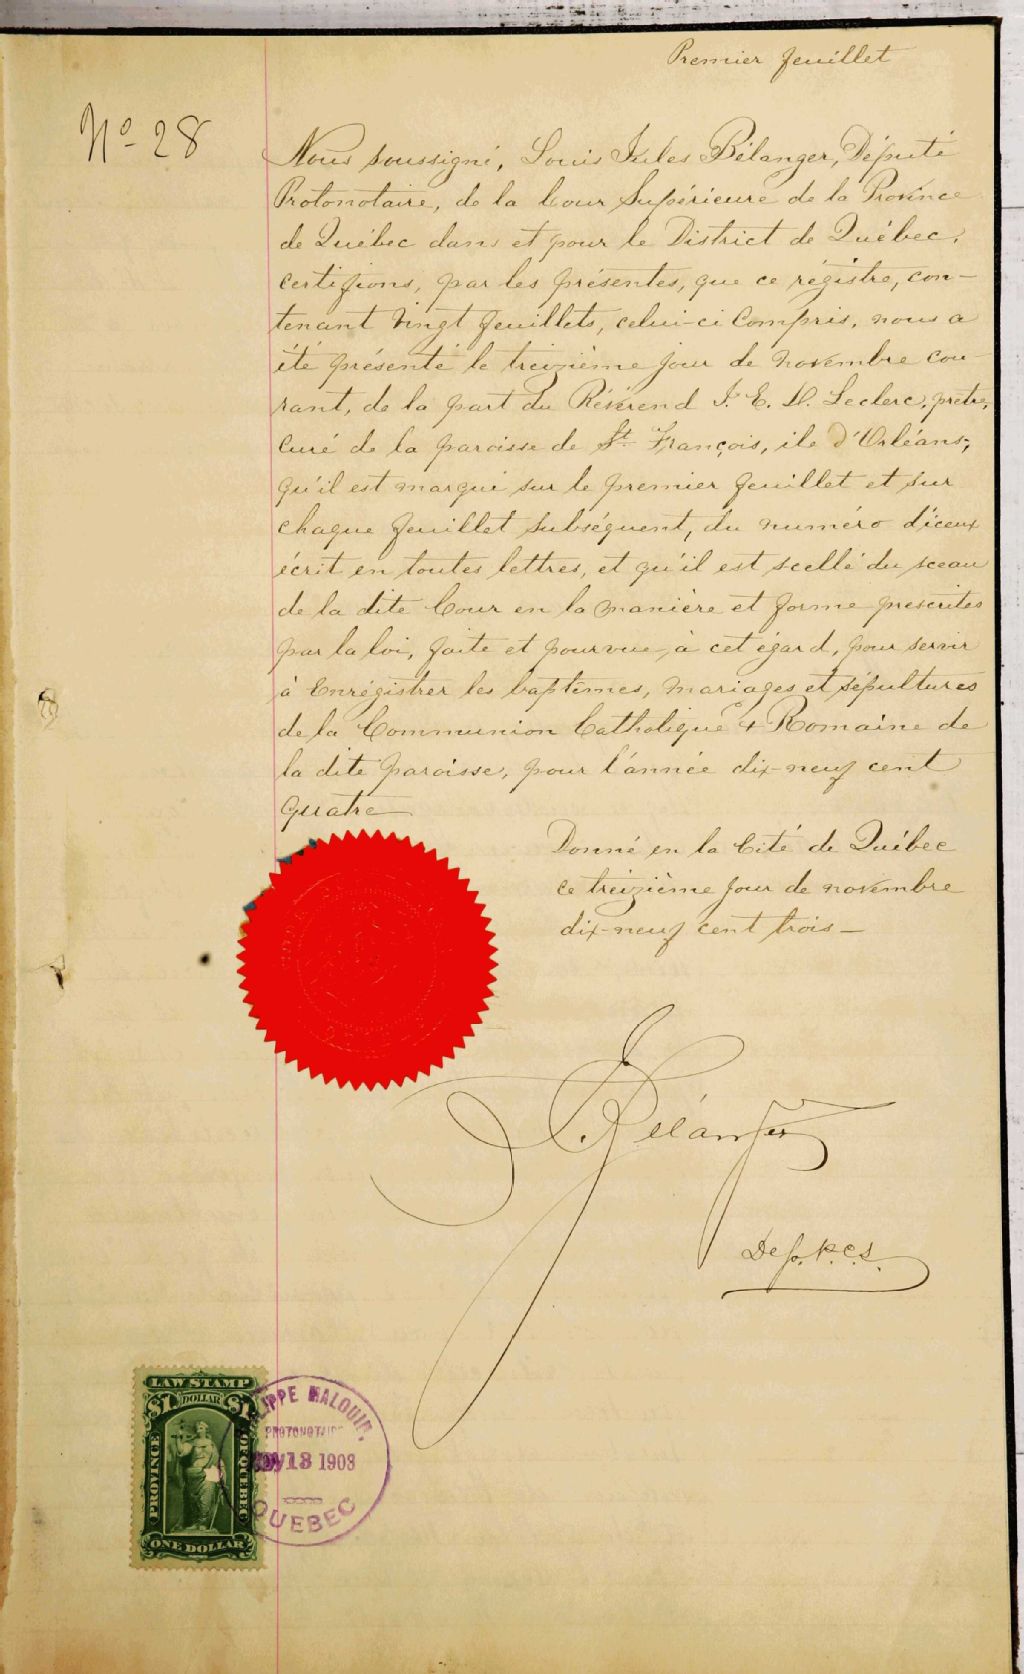 Premier feuillet
No 28
Nous soussigné, Louis Jules Bélanger, Député
Protonotaire, de la Cour Supérieure de la Province
de Québec dans et pour le District de Québec,
certifions, par les présentes, que ce régistre, con-
tenant vingt feuillets, celui-ci compris, nous a
été présenté le treizième jour de novembre cou-
rant, de la part du Révérend J. E. D. Leclerc, prêtre,
curé de la paroisse de St François, ile d'Orléans,
qu'il est marqué sur le premier feuillet et sur
chaque feuillet subséquent, du numéro d'iceux
écrit en toutes lettres, et qu'il est scellé du sceau
de la dite Cour en la manière et forme prescrites
par la loi, faite et pourvue à cet égard, pour servir
à Enrégistrer les baptêmes, mariages et sépultures
de la Communion Catholique & Romaine de
la dite paroisse, pour l'année dix-neuf cent
quatre
Donné en la Cité de Québec
ce treizième jour de novembre
dix-neuf cent trois —
Bélanger
Dep. P.C.S.
LAW STAMP
$1 DOLLAR $1
PROVINCE OF QUEBEC
ONE DOLLAR
MALOUIN,
PROTONOTAIRE
NOV 13 1903
QUEBEC